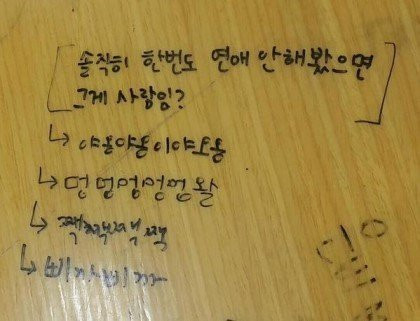 솔직히 한번도 연애 안해봤으면
그게 사랑임?
↳ 야옹야옹이야오옹
↳ 멍멍멍멍멍왈
↳ 짹짹짹짹
↳ 삐까삐까